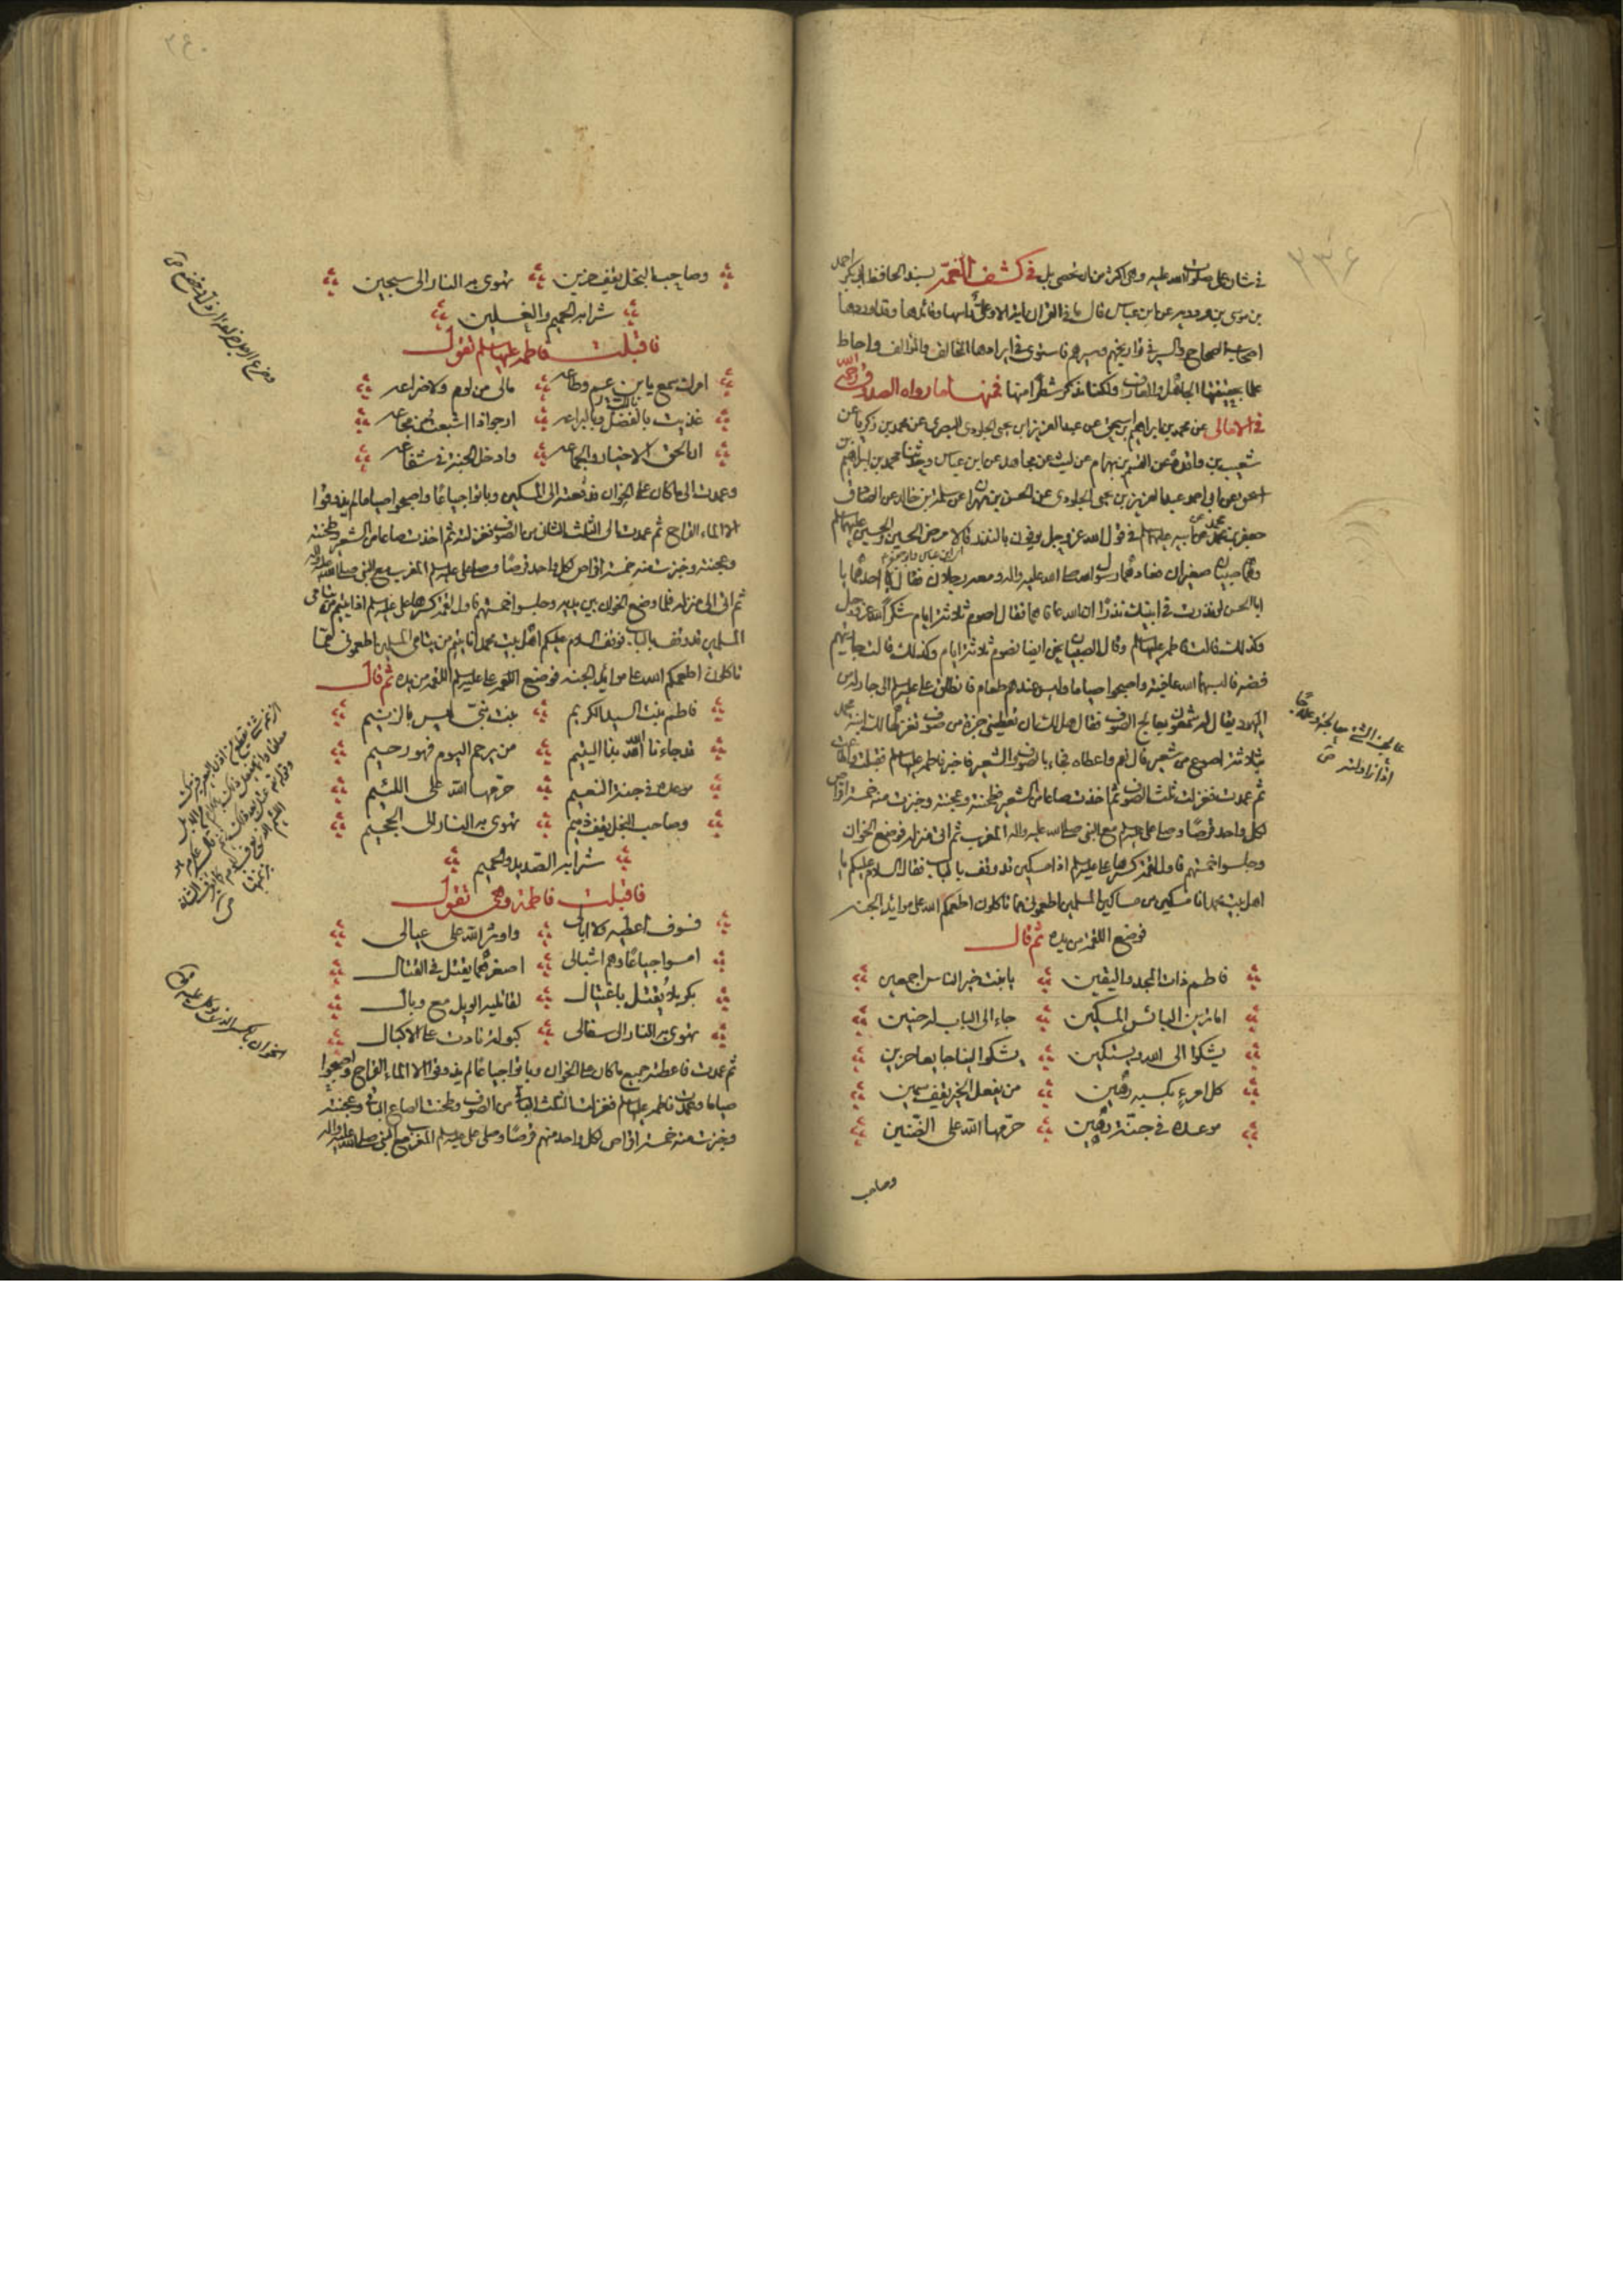 ٢٣٩
في شان علي صلوات الله عليه وهي اكثر من ان تحصى بل في كشف الغمّة بسند الحافظ ابي بكر احمد
بن موسى بن مردويه عن ابن عباس قال ما في القران اية الا وعليٌّ راسها وقائدها وقد اوردها
اصحاب الصحاح والسير في تواريخهم وسيرهم فاستوى في ايرادها المخالف والمؤالف واحاط
علما بحقيقتها الجاهل والعارف ولكنا نذكر شطرا منها فمنها ما رواه الصدوق ره
في الامالي عن محمد بن ابراهيم بن اسحق عن عبد العزيز ابن يحيى الجلودي البصري عن محمد بن زكريا عن
شعيب بن واقد عن القسم بن بهرام عن ليث عن مجاهد عن ابن عباس وحدثنا محمد بن ابراهيم بن
اسحق عن ابي احمد عبد العزيز بن يحيى الجلودي عن الحسن بن مهران عن سلمة بن خالد عن الصادق
جعفر بن محمد عن ابيه عليهما السلم في قول الله عز وجل يوفون بالنذر قالا مرض الحسن والحسين عليهما السلم
وهما صبيان صغيران فعادهما رسول الله صلى الله عليه واله ومعه رجلان فقال احدهما يا
ابا الحسن لو نذرت في ابنيك نذرًا ان الله عافاهما فقال اصوم ثلاثة ايام شكرًا لله عز وجل
وكذلك قالت فاطمه عليها السلم وقال الصبيان نحن ايضا نصوم ثلاثة ايام وكذلك قالت جاريتهم
فضه فالبسهما الله عافيته واصبحوا صياما وليس عندهم طعام فانطلق علي عليه السلم الى جار له من
اليهود يقال له شمعون يعالج الصوف فقال هل لك ان تعطيني جزة من صوف تغزلها لك ابنة محمد
بثلاثة اصوع من شعير قال نعم واعطاه فجاء بالصوف والشعير فاخبر فاطمه عليها السلم فقبلت واطاعت
ثم عمدت فغزلت ثلث الصوف ثم اخذت صاعا من الشعير فطحنته وعجنته وخبزت منه خمسة اقراص
لكل واحد قرصًا وصلى علي عليه السلم مع النبي صلى الله عليه واله المغرب ثم اتى منزله فوضع الخوان
وجلسوا خمستهم فاول لقمة كسرها علي عليه السلم اذا مسكين قد وقف بالباب فقال السلام عليكم يا
اهل بيت محمد انا مسكين من مساكين المسلمين اطعموني مما تاكلون اطعمكم الله على موائد الجنه
فوضع اللقمة من يده ثم قال
فاطم ذات المجد واليقين يا بنت خير الناس اجمعين
اما ترين البائس المسكين جاء الى الباب له حنين
يشكوا الى الله ويستكين يشكوا الينا جايعا حزين
كل امرءٍ بكسبه رهين من يفعل الخير يقف سمين
موعده في جنّة رهين حرّمها الله على الضنين
وصاحب
عالجت الشئ معالجة وعلاجًا
اذا زاولته ص
٢٤٠
وصاحب البخل يقف حزين تهوي به النار الى سجين
شرابه الحميم والغسلين
فاقبلت فاطمه عليها السلم تقول
امرك سمع يا بن عم وطاعه مالي من لوم ولا ضراعه
غذيت بالفضل وبالبراعه ارجوا اذا اشبعت من مجاعه
ان الحق الاخيار والجماعه وادخل الجنة في شفاعه
وعمدت الى ما كان على الخوان فدفعته الى المسكين وباتوا جياعًا واصبحوا صياما لم يذوقوا
الا الماء القراح ثم عمدت الى الثلث الثاني من الصوف فغزلته ثم اخذت صاعا من الشعير فطحنته
وعجنته وخبزت منه خمسة اقراص لكل واحد قرصًا وصلى علي عليه السلم المغرب مع النبي صلى الله عليه واله
ثم اتى الى منزله فلما وضع الخوان بين يديه وجلسوا خمستهم فاول لقمة كسرها علي عليه السلم اذا يتيم من يتامى
المسلمين قد وقف بالباب فوقف السلام عليكم اهل بيت محمد انا يتيم من يتامى المسلمين اطعموني مما
تاكلون اطعمكم الله على موائد الجنه فوضع اللقمة علي عليه السلم اللقمة من يده ثم قال
فاطم بنت السيد الكريم بنت نبيّ ليس بالزنيم
قد جاءنا الله بذا اليتيم من يرحم اليوم فهو رحيم
موعده في جنة النعيم حرّمها الله على اللئيم
وصاحب البخل يقف ذميم تهوي به النار الى الجحيم
شرابه الصديد والحميم
فاقبلت فاطمة وهي تقول
فسوف اعطيه ولا ابالي واوثر الله على عيالي
امسوا جياعًا وهم اشبالي اصغرهما يقتل في القتال
بكربلا يُقتل باغتيال لقاتليه الويل مع وبال
تهوي به النار الى سفال كبوله زادت على الاكبال
ثم عمدت فاعطته جميع ما كان على الخوان وباتوا جياعًا لم يذوقوا الا الماء القراح واصبحوا
صياما وعمدت فاطمه عليها السلم فغزلت الثلث الباقي من الصوف وطحنت الصاع الباقي وعجنته
وخبزت منه خمسة اقراص لكل واحد منهم قرصًا وصلى علي عليه السلم المغرب مع النبي صلى الله عليه واله